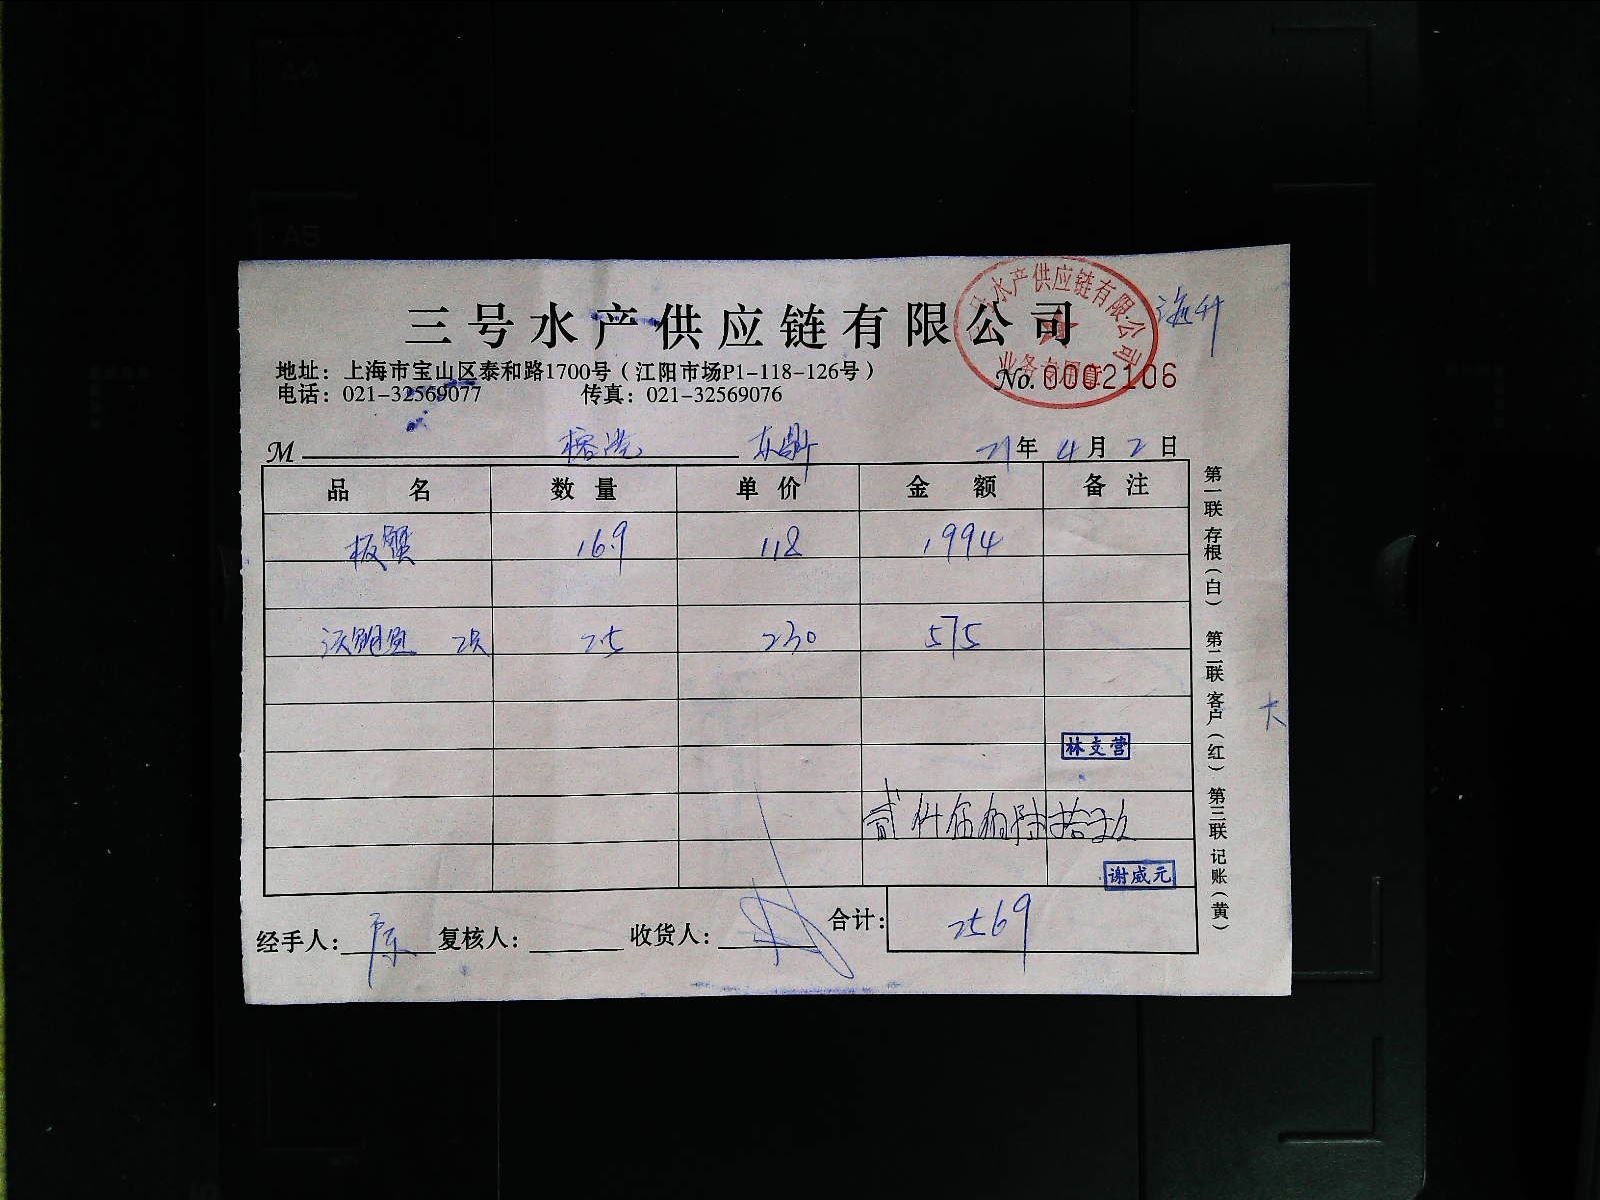 三号水产供应链有限公司
海升
地址：上海市宝山区泰和路1700号（江阳市场P1-118-126号）
电话：021-32569077 传真：021-32569076
号水产供应链有限公司
业务专用章
No. 0002106
M 东鼎 21年4月2日
品名 数量 单价 金额 备注
板蟹 16.9 118 1994
2.5 230 575
林支营
贰仟伍佰陆拾玖
谢威元
经手人： 复核人： 收货人： 合计： 2569
第一联 存根（白） 第二联 客户（红） 第三联 记账（黄）
大
A4
A5